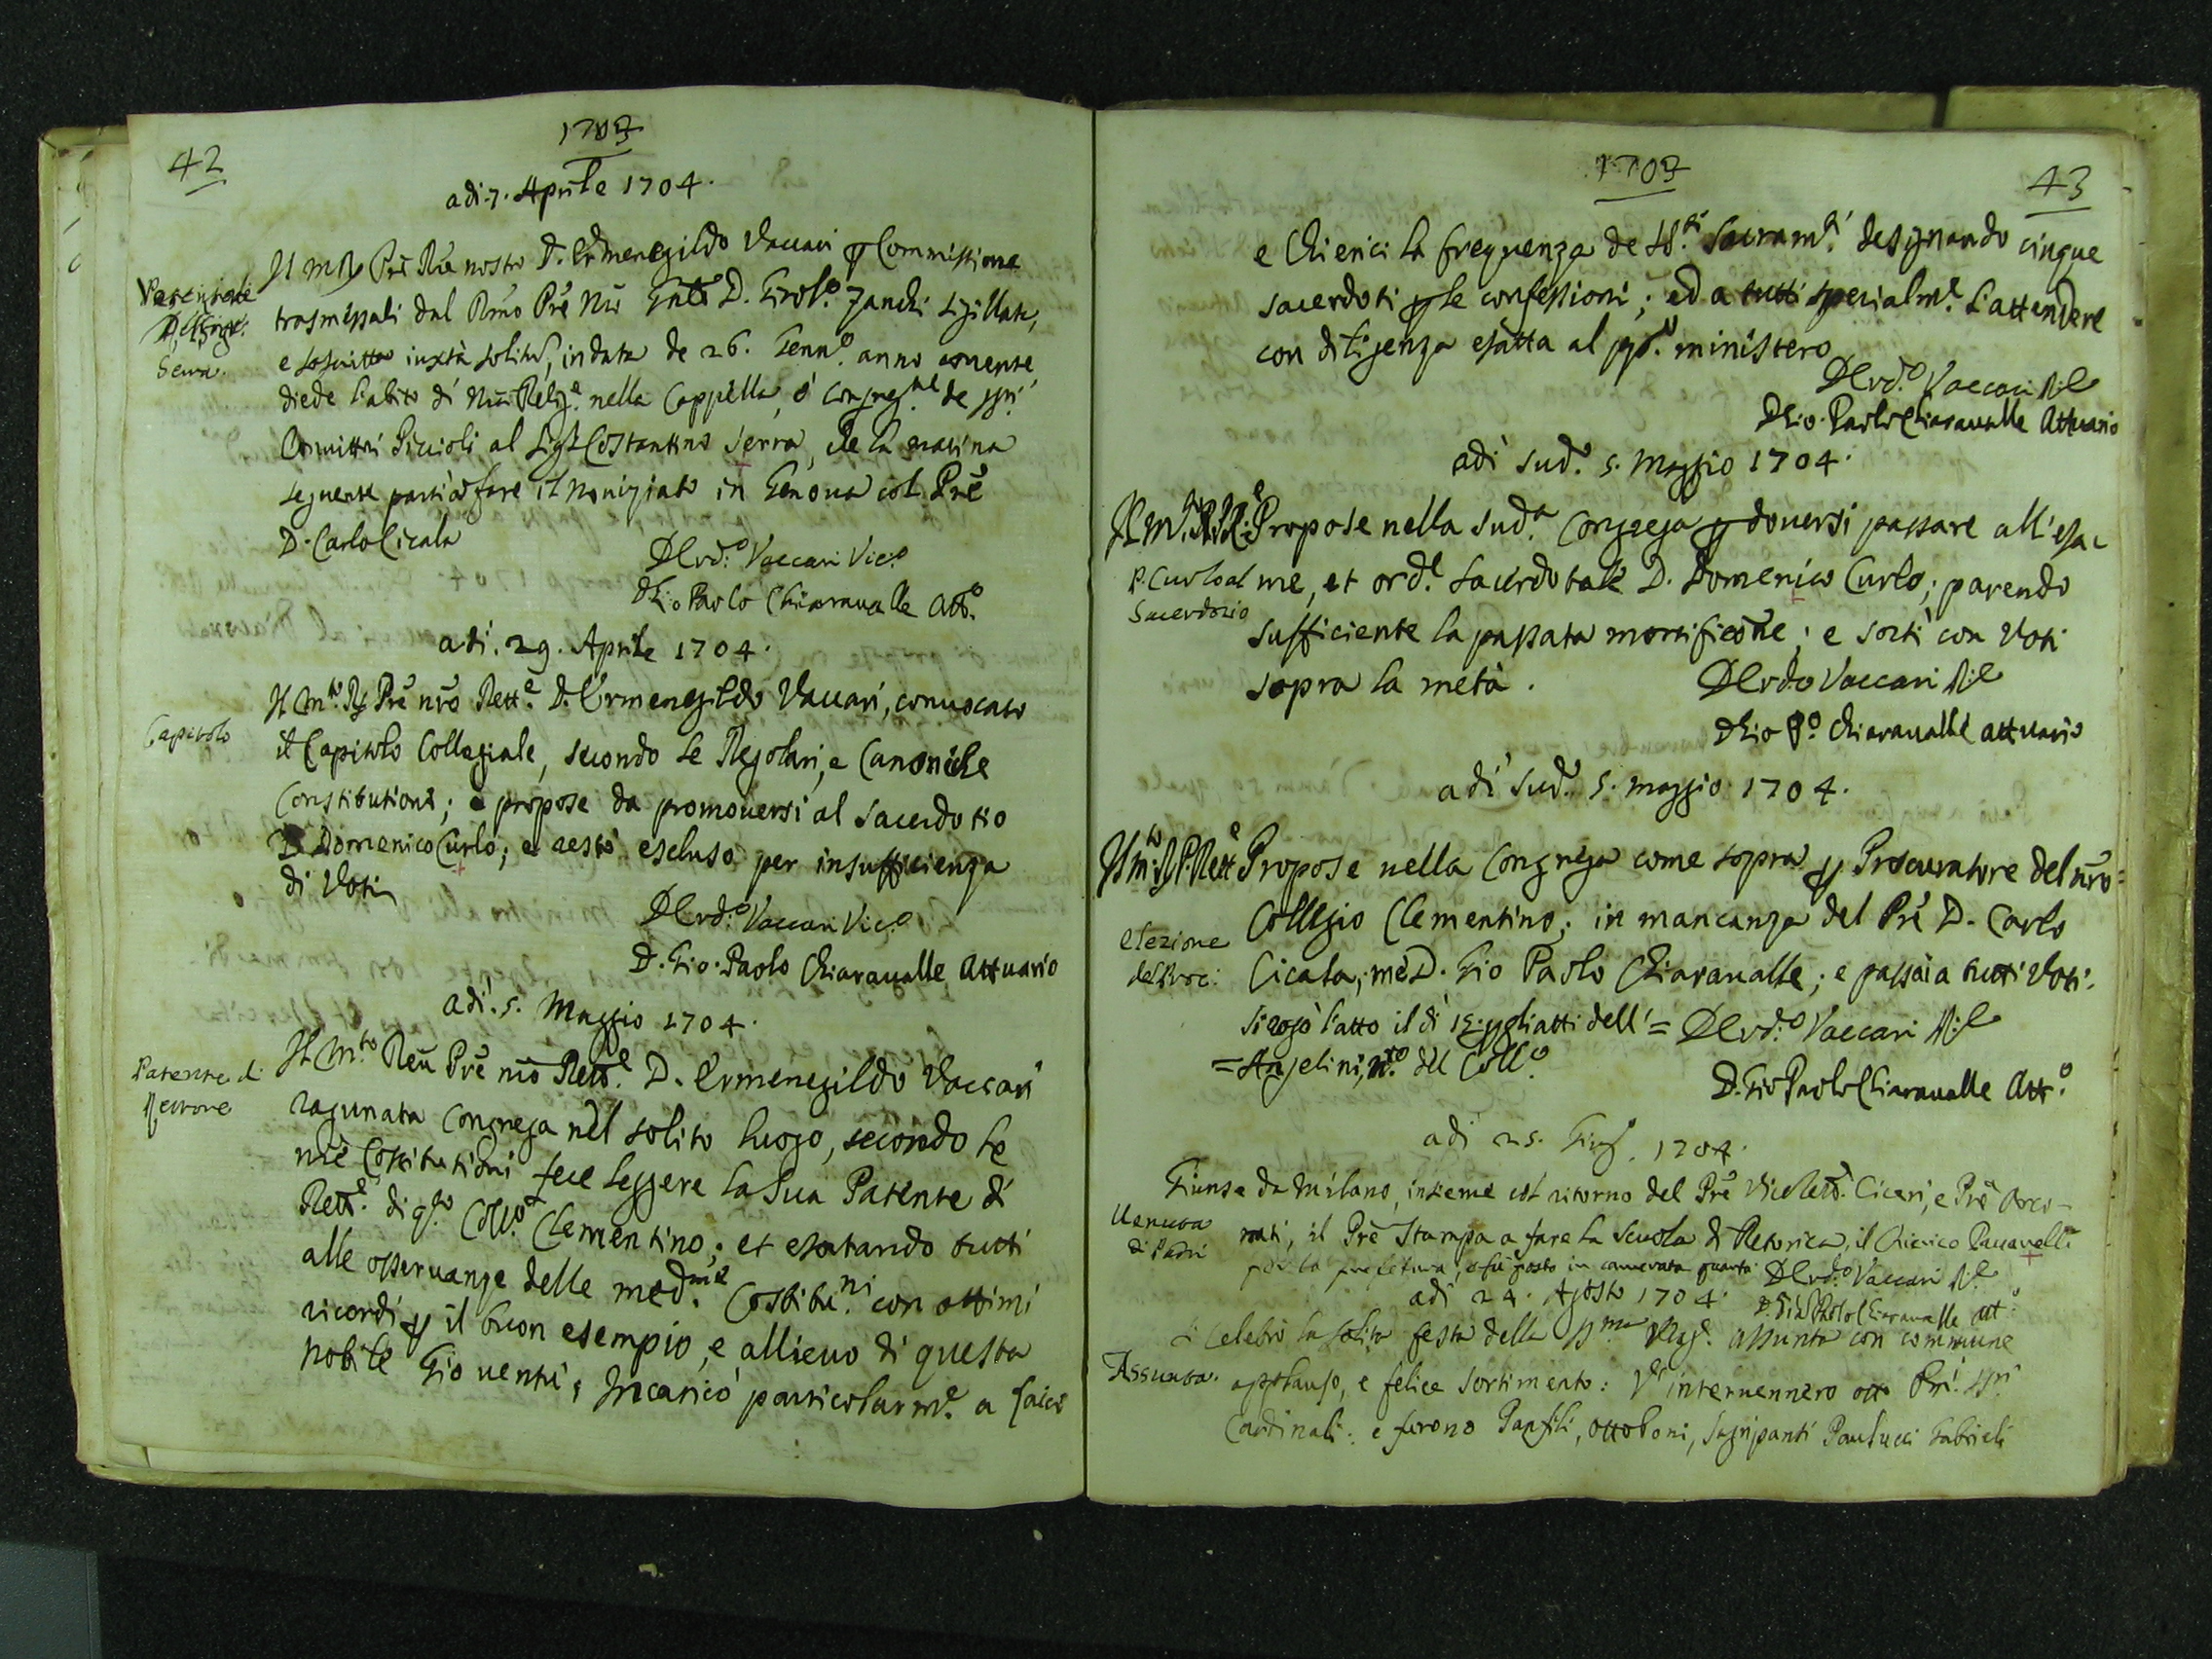 42
1703
adi 7. Aprile 1704.
Il m R Prē Rẽ nostro D. Ermenegildo Vaccari p Commissione
trasmessali dal Rmo Prē Nrō Gnle D. Girol.º Zanchi sigillata,
Serra.
e soscritta iuxtà solitũ, in data de 26. Genn.º anno corrente
diede l'abito di Nrã Relig.e nella Cappella, ò Congreg.ne de SSri
Convittori Piccioli al Sig.r Costantino Serra, che la matina
seguente partì à fare il Noviziato in Genova col Prē
D. Carlo Cicala
D Erd.º Vaccari Vic.º
D Gio Paolo Chiaraualle Att.º
adi. 29. Aprile 1704.
Capitolo
Il M.to R Prē nrō Rett.e D. Ermenegildo Vaccari, convocato
il Capitolo Collegiale, secondo le Regolari, e Canoniche
Constitutioni; e propose da promouersi al Sacerdotio
D Domenico Curlo; e restò escluso per insufficienza
di Voti
D Erd.º Vaccari Vic.º
D. Gio. Paolo Chiaraualle Attuario
adi. 5. Maggio 1704.
Patente di
Rettore
Il M.to Reũ Prē nrō Rett.e D. Ermenegildo Vaccari
ragunata Congrega nel solito luogo, secondo le
nrē Costitutioni fece leggere la Sua Patente di
Rett.e di q.to Coll.º Clementino; et esortando tutti
alle osseruanze delle med.me Costitu.ni con ottimi
ricordi p il buon esempio, e allieuo di questa
nobile Giouentù, Incaricò particolarm.e a laici
1703
43
e Chierici la frequenza de SS.ti Sacram.ti designando cinque
sacerdoti p le confessioni; ed a tutti specialm.e l'attendere
con diligenza esatta al pp.º ministero
D Erd.º Vaccari R.e
D Gio. Paolo Chiaraualle Attuario
adi sud.º 5. Maggio 1704.
Il M.to R. P. R.e Propose nella sud.a Congrega p douersi passare all'esa-
P. Curlo al
Sacerdozio
me, et ord.e Sacerdotale D. Domenico Curlo; parendo
sufficiente la passata mortificõne; e sortì con Voti
sopra la metà.
D Erdo Vaccari R.e
D Gio P.º Chiaraualle attuario
adi sud.º 5. maggio 1704.
Il M.to R P. Rett.e Propose nella Congrega come sopra p Procuratore del nrō
elezione
del Proc:
Collegio Clementino; in mancanza del Prē D. Carlo
Cicala, me D. Gio Paolo Chiaraualle; e passai a tutti Voti.
Si rogò l'atto il dì 15. p gli atti dell' = D Erd.º Vaccari R.e
= Angelini, n.ro del Coll.º
D. Gio Paolo Chiaraualle Att.º
adi 25. Giug.º 1704.
Venuta
di Padri
Giunse da Milano, insieme col ritorno del Prē ViceRett.e Ciceri, e Prē Arco-
nati, il Prē Stampa a fare la Scuola di Retorica, il Chierico Paccanelli
p la prefettura, e fù posto in camerata quarta. D Erd.º Vaccari R.e
D Gio Paolo Chiaraualle Att.º
adi 24. Agosto 1704.
Assunta.
Si celebrò la solita festa della SS.ma Verg.e assunta con commune
applauso, e felice sortimento: V' interuennero otto SSri
Cardinali: e furono Panfili, Ottoboni, Sagripanti Paulucci Gabrieli